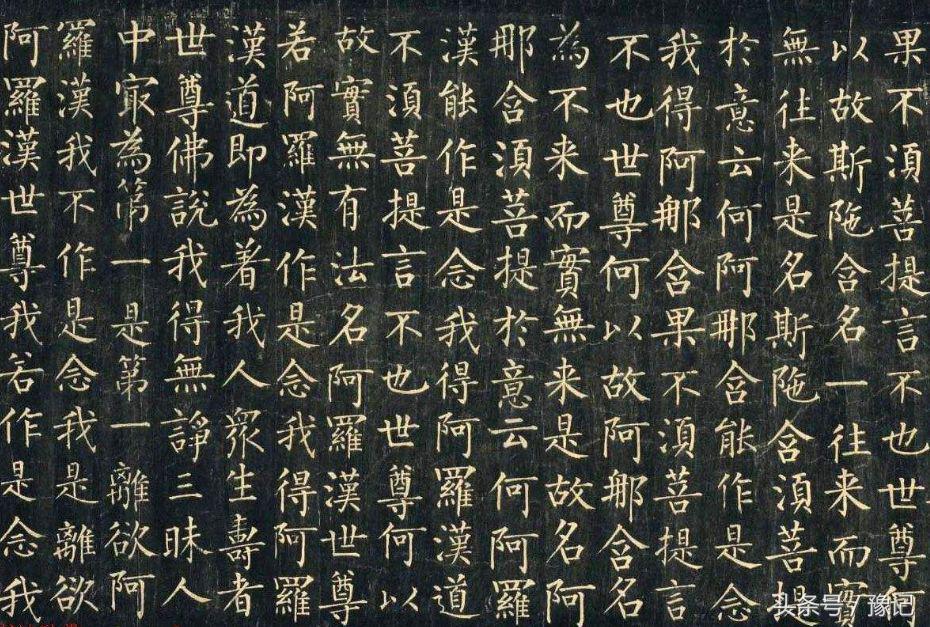 果不湏菩提言不也世尊何
以故斯陁含名一往来而實
無往来是名斯陁含湏菩提
於意云何阿那含能作是念
我得阿那含果不湏菩提言
不也世尊何以故阿那含名
為不来而實無来是故名阿
那含湏菩提於意云何阿羅
漢能作是念我得阿羅漢道
不湏菩提言不也世尊何以
故實無有法名阿羅漢世尊
若阿羅漢作是念我得阿羅
漢道即為著我人眾生壽者
世尊佛說我得無諍三昧人
中冣為第一是第一離欲阿
羅漢我不作是念我是離欲
阿羅漢世尊我若作是念我
头条号 / 豫记